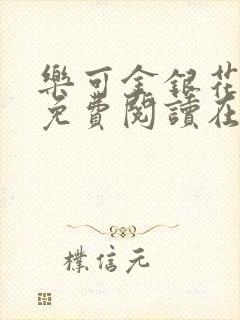 樂可金銀花
免費閱讀在
樸信元